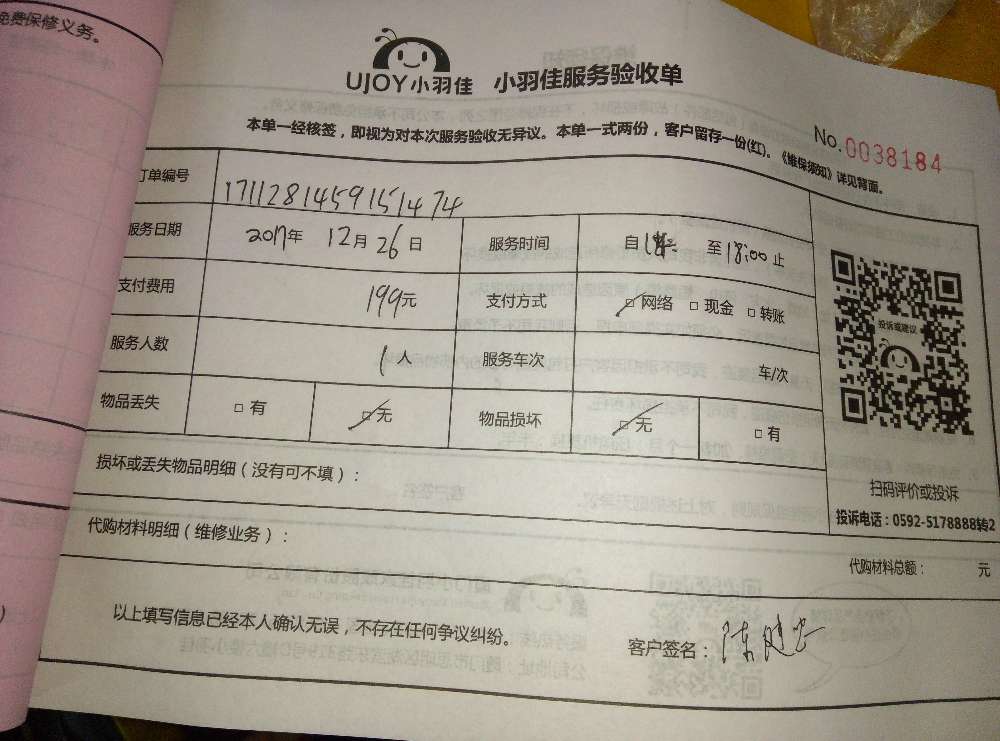 免费保修义务。
UJOY小羽佳 小羽佳服务验收单
No.0038184
本单一经核签，即视为对本次服务验收无异议。本单一式两份，客户留存一份(红)。《维保须知》详见背面。
订单编号 1711281459151474
服务日期 2017年 12月 26日 服务时间 自 至 18:00 止
支付费用 199元 支付方式 □网络 □现金 □转账
服务人数 1人 服务车次 车/次
物品丢失 □有 □无 物品损坏 □无 □有
投诉或建议
扫码评价或投诉
投诉电话：0592-5178888转2
损坏或丢失物品明细（没有可不填）：
代购材料明细（维修业务）：
代购材料总额： 元
以上填写信息已经本人确认无误，不存在任何争议纠纷。
客户签名：陈健